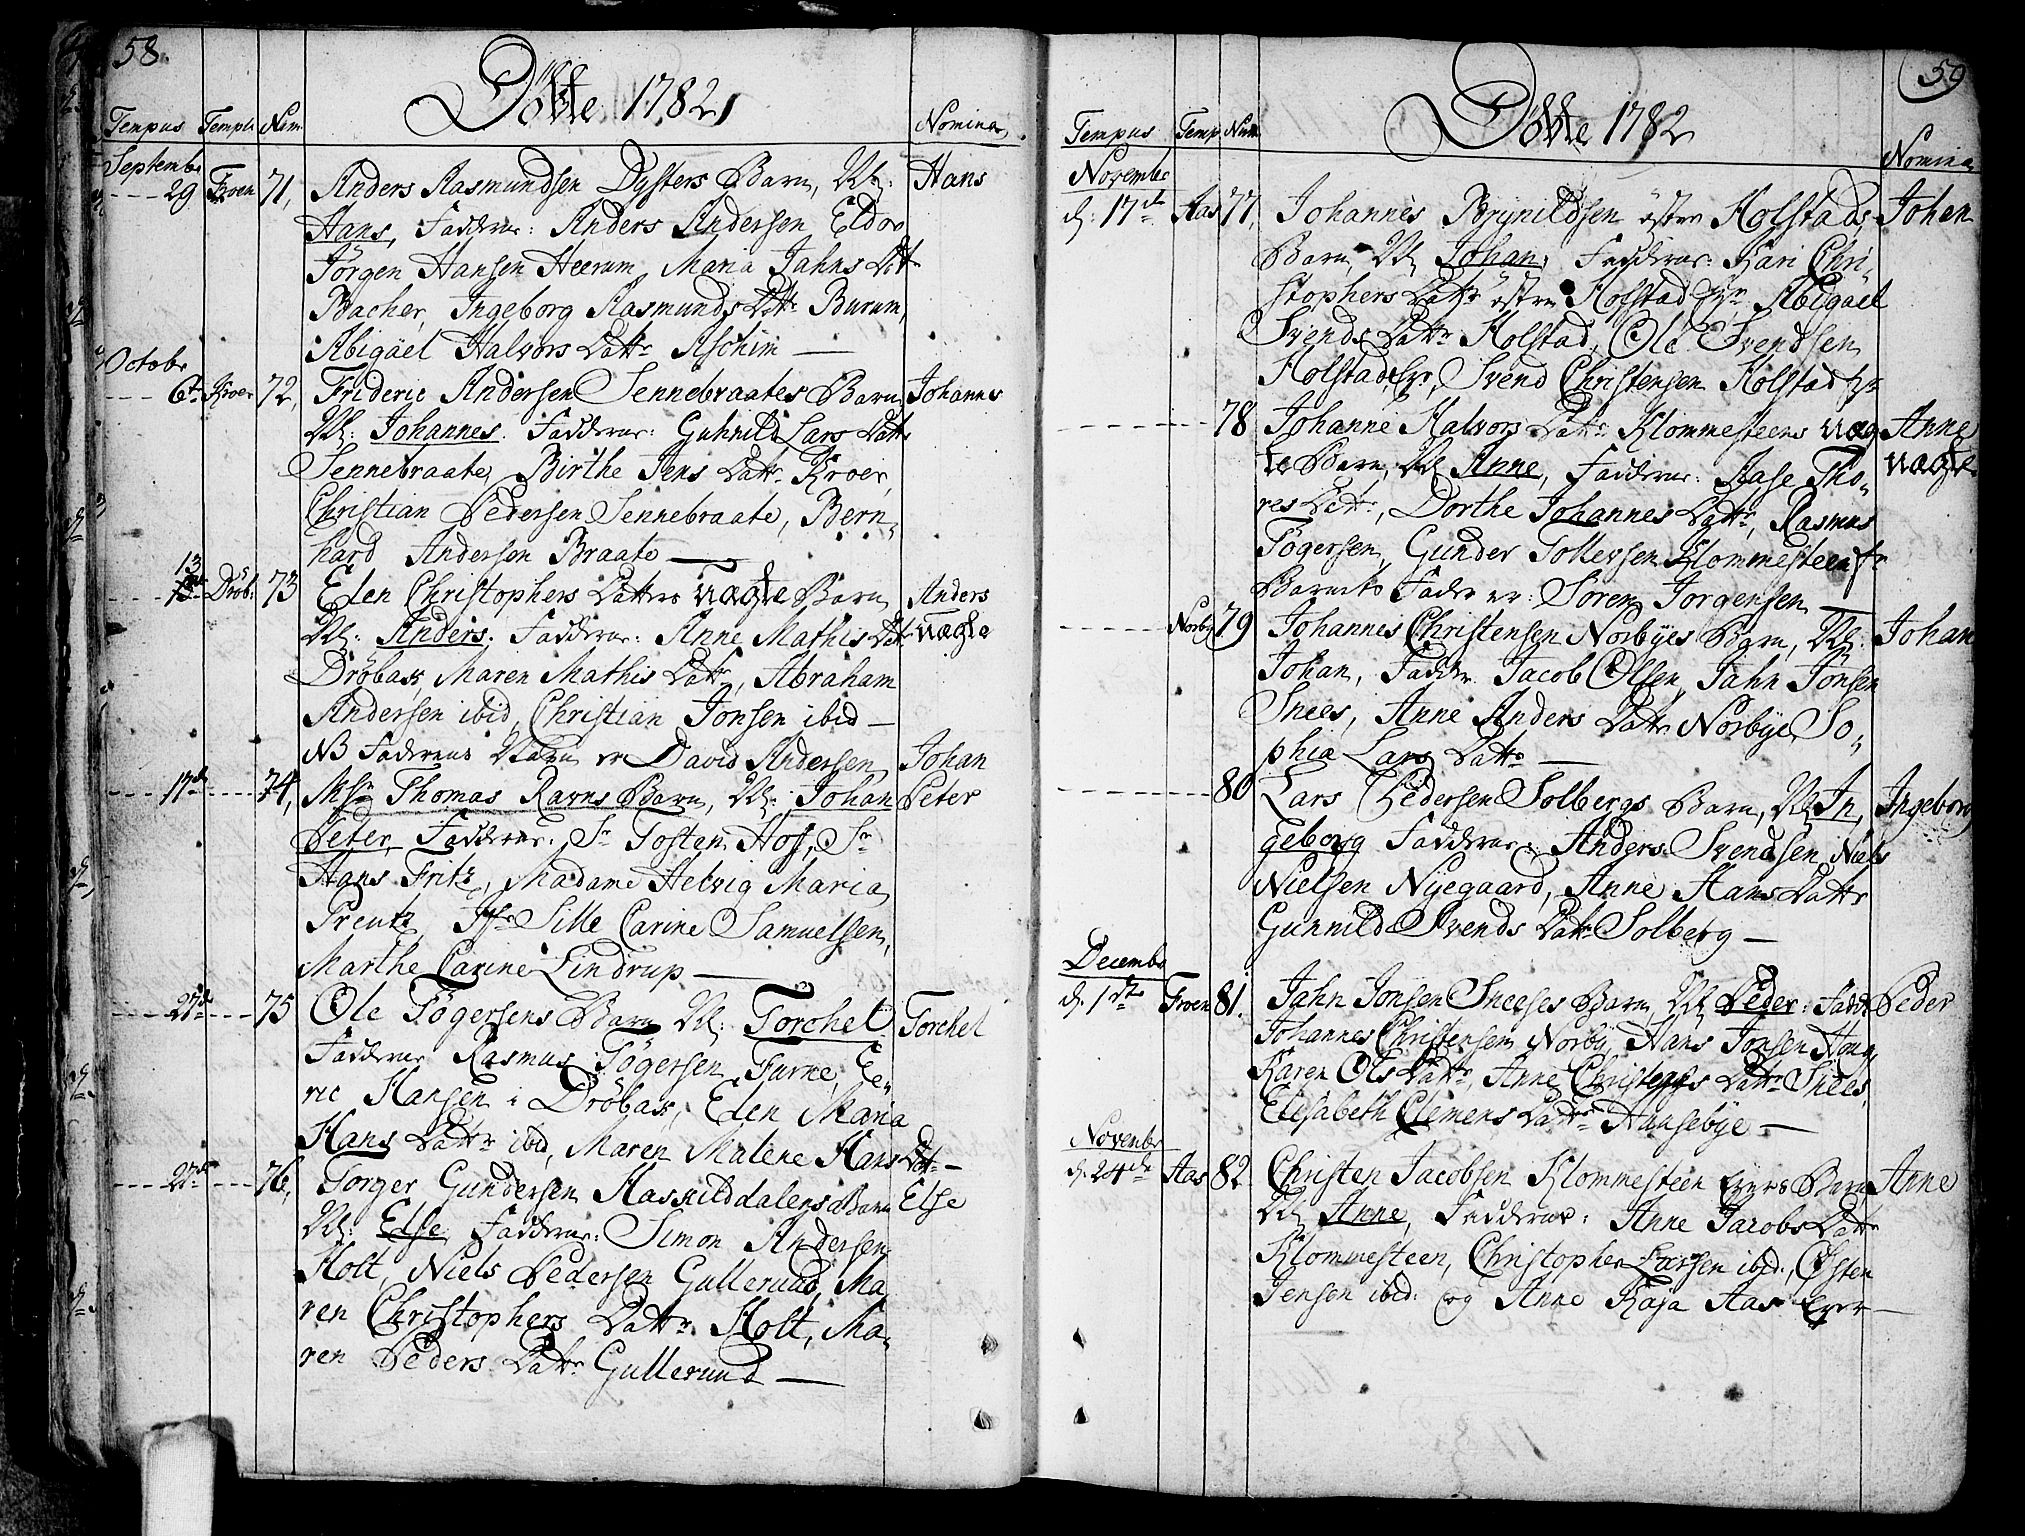 58.
Döbte 1782
Tempus Templ: Num: Nomina
Septembr
29 Froen 71, Anders Rasmundsen Dysters Barn, N: Hans
Hans, Fadderne: Anders Andersen Eldor
Jörgen Hansen Heerum, Maria Jahns Datt
Bacher, Ingeborg Rasmunds Dattr Burum,
Abigäel Halvors Dattr Aschim —
Octobr
6te Kroer 72, Frideric Andersen Sennebraates Barn Johannes
N: Johannes. Fadderne: Guhnild Lars Dattr
Sennebraate, Birthe Jens Dattr Kroer,
Christian Pedersen Sennebraate, Bern,
hard Andersen Braate —
13 Dröb: 73 Elen Christophers Datters uægte Barn Anders
N: Anders. Fadderne: Anne Mathis Datt uægte
Dröbak, Maren Mathis Dattr, Abraham
Andersen ibid, Christian Jonsen ibid —
NB Faderens Navn er David Andersen
17de 74, Msr Thomas Ravns Barn, N: Johan Johan Peter
Peter, Fadderne: Sr Tosten Hof, Sr
Hans Fritz, Madame Helvig Maria
Preutz, Jfr Sille Carine Samuelsen,
Marthe Carine Lindrup —
27de 75 Ole Tögersens Barn N: Torchel Torchel
Fadderne Rasmus Tögersen Furne, Ee„
ric Hansen i Dröbak, Elen Maria
Hans Dattr ibid, Maren Malene Hans Datt —
27de 76, Torger Gundersen Haskilddalens Barn Else
N: Else, Fadderne: Simon Andersen
Holt, Niels Pedersen Gullerud, Ma,
ren Christophers Dattr Holt, Ma,
ren Peders Dattr Gullerund —
59
Döbte 1782
Tempus Temp Num Nomina
Novembr
d: 17de Aas 77, Johannes Brynildsen östre Holstads Johan
Barn, N Johan, Fadderne: Kari Chri,
stophers Dattr östre Holstad Eyr, Abigäel
Svends Dattr Holstad, Ole Svendsen
Holstad Eyr, Svend Christensen Holstad Eyr
78 Johanne Halvors Dattr Klommesteens uæg Anne
te Barn, N Anne, Fadderne: Aase Tho, uægte
res Dattr, Dorthe Johannes Dattr, Rasmus
Tögersen, Gunder Tollevsen Klommesteen
Barnets Fader er: Sören Jorgensen —
Norby 79 Johannes Christensen Norbyes Barn, N: Johan
Johan, Faddr Jacob Olsen, Jahn Jonsen
Snees, Anne Anders Dattr Norbye, So„
phia Lars Dattr —
80 Lars Pedersen Solbergs Barn, N In, Ingeborg
geborg Fadderne: Anders Svendsen, Niels
Nielsen Nyegaard, Anne Hans Dattr
Gunnild Svends Dattr Solberg —
Decembr
d. 1ste Froen 81. Jahn Jonsen Sneeses Barn, N Peder: Fadd Peder
Johannes Christensen Norby, Hans Jonsen Houg
Karen Ols Dattr, Anne Christens Dattr Snees,
Elisabeth Clemens Dattr Haussebye —
Novembr
d. 24de Aas 82. Christen Jacobsen Klommesteen Eyers Barn Anne
N Anne, Fadderne: Anne Jacobs Dattr
Klommesteen, Christopher Larsen ibid:, Østen
Jensen ibid: og Anne Kaja Aas Eyer —